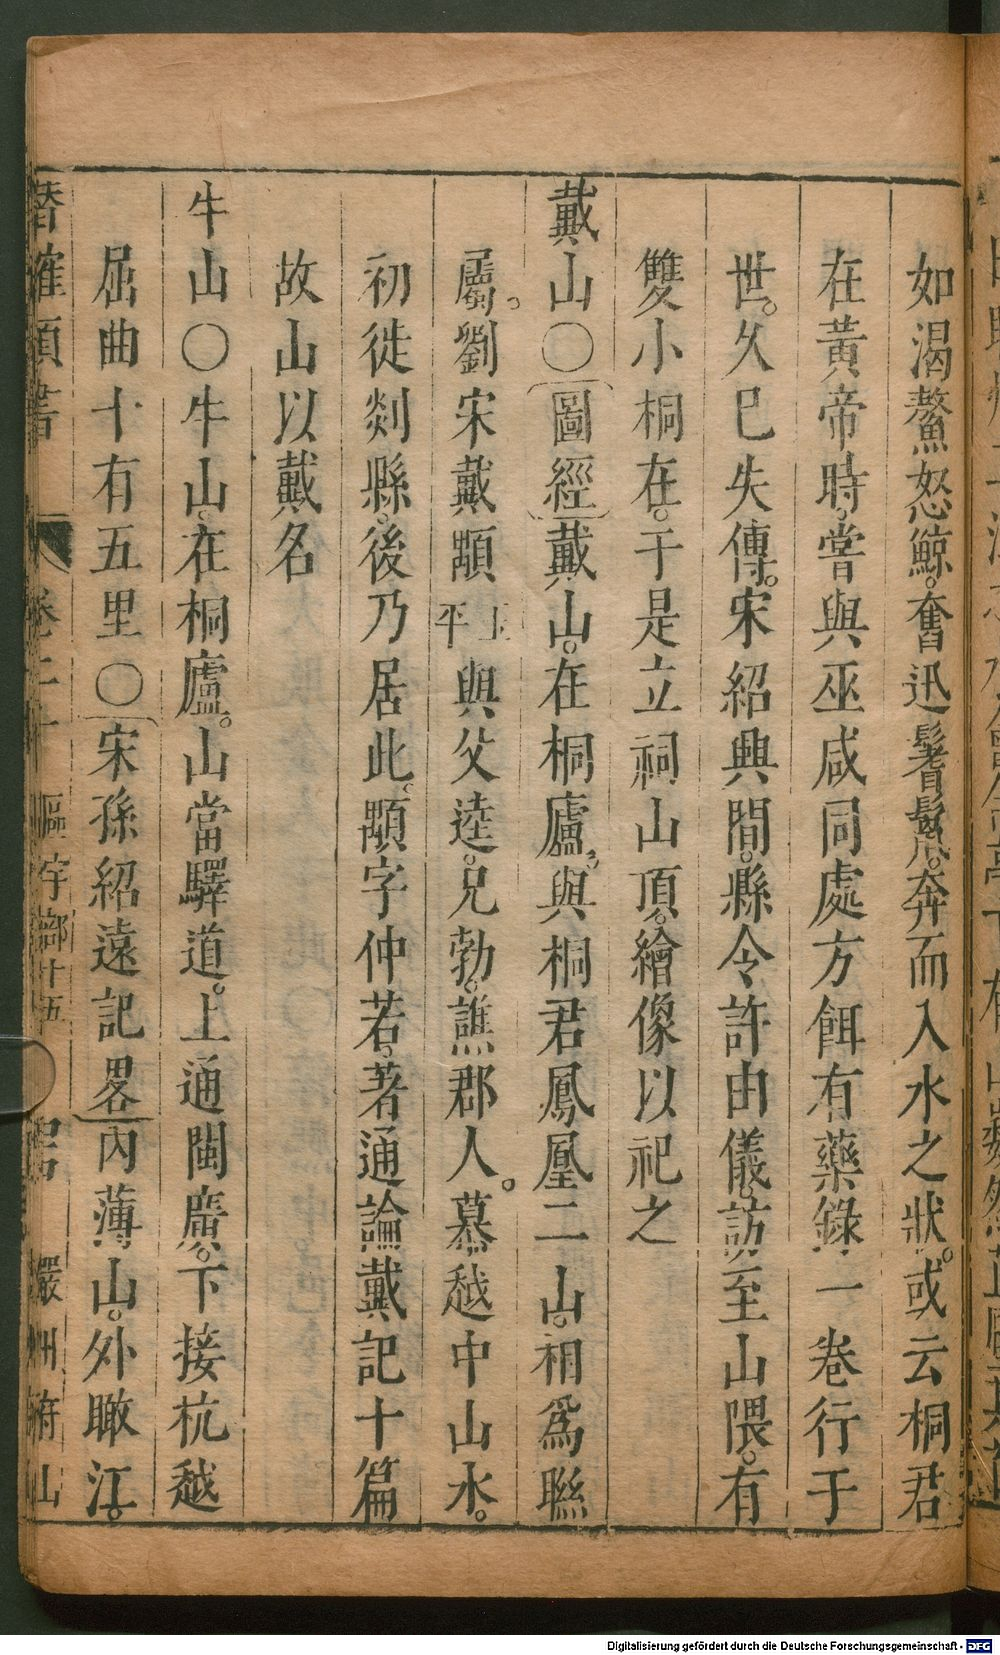 如渴鰲怒鯨。奮迅鬐鬣。奔而入水之狀。或云桐君
在黃帝時。嘗與巫咸同處方餌有藥錄一卷行于
世。久已失傳。宋紹興間。縣令許由儀。訪至山隈。有
雙小桐在。于是立祠山頂。繪像以祀之
戴山〇圖經戴山。在桐廬。與桐君鳳凰二山。相爲聯
屬。劉宋戴顒上平與父逵。兄勃。譙郡人。慕越中山水。
初徙剡縣。後乃居此。顒字仲若。著通論戴記十篇
故山以戴名
牛山〇牛山。在桐廬。山當驛道。上通閩廣。下接杭越
屈曲十有五里〇宋孫紹遠記畧內薄山。外瞰江。
潛確類書
卷二十 區宇部十五 嚴州府山
Digitalisierung gefördert durch die Deutsche Forschungsgemeinschaft - DFG